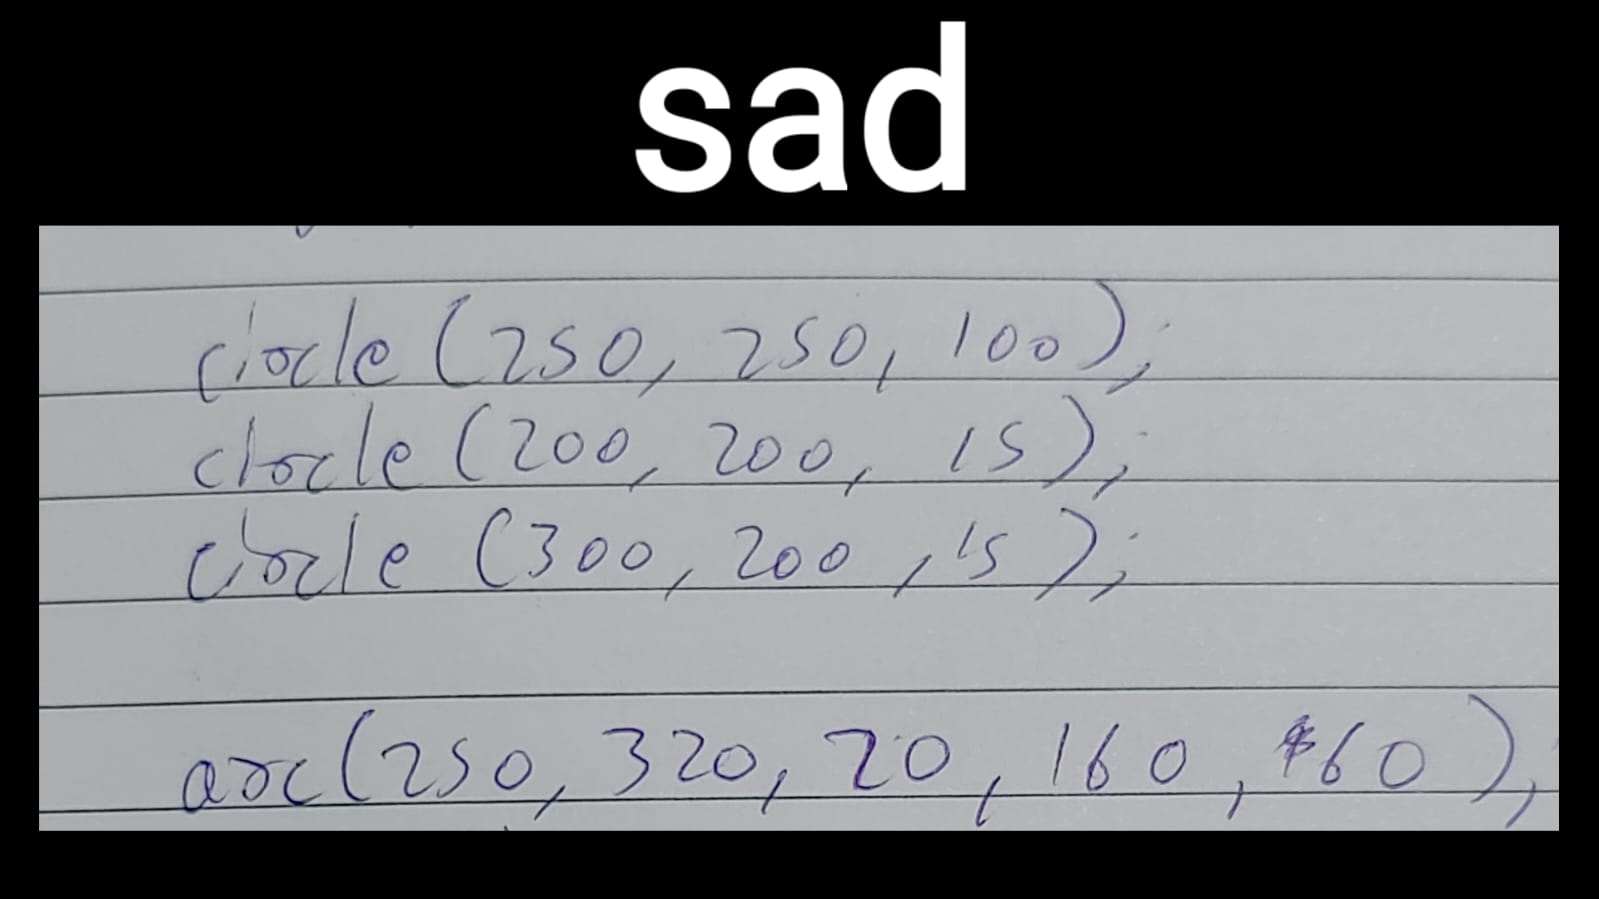 sad
circle (250, 250, 100);
circle (200, 200, 15);
circle (300, 200, 15);
arc (250, 320, 20, 160, 60);